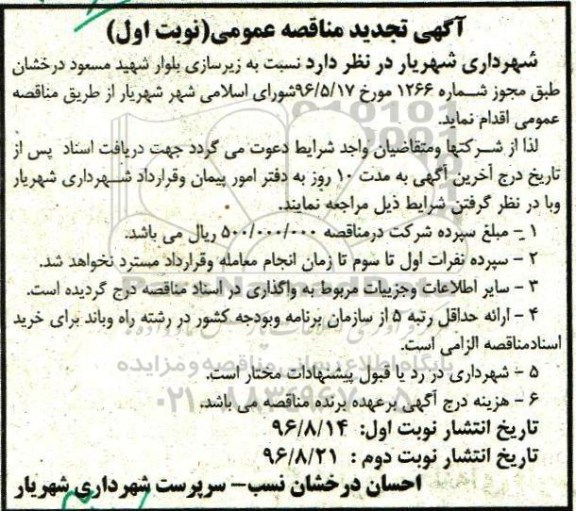 آگهی تجدید مناقصه عمومی(نوبت اول)
شهرداری شهریار در نظر دارد نسبت به زیرسازی بلوار شهید مسعود درخشان
طبق مجوز شماره ۱۲۶۶ مورخ ۹۶/۵/۱۷شورای اسلامی شهر شهریار از طریق مناقصه
عمومی اقدام نماید.
لذا از شرکتها ومتقاضیان واجد شرایط دعوت می گردد جهت دریافت اسناد پس از
تاریخ درج آخرین آگهی به مدت ۱۰ روز به دفتر امور پیمان وقرارداد شهرداری شهریار
وبا در نظر گرفتن شرایط ذیل مراجعه نمایند.
۱- مبلغ سپرده شرکت درمناقصه ۵۰۰/۰۰۰/۰۰۰ ریال می باشد.
۲ - سپرده نفرات اول تا سوم تا زمان انجام معامله وقرارداد مسترد نخواهد شد.
۳ - سایر اطلاعات وجزییات مربوط به واگذاری در اسناد مناقصه درج گردیده است.
۴ - ارائه حداقل رتبه ۵ از سازمان برنامه وبودجه کشور در رشته راه وباند برای خرید
اسنادمناقصه الزامی است.
۵ - شهرداری در رد یا قبول پیشنهادات مختار است.
۶ - هزینه درج آگهی برعهده برنده مناقصه می باشد.
تاریخ انتشار نوبت اول: ۹۶/۸/۱۴
تاریخ انتشار نوبت دوم : ۹۶/۸/۲۱
احسان درخشان نسب- سرپرست شهرداری شهریار